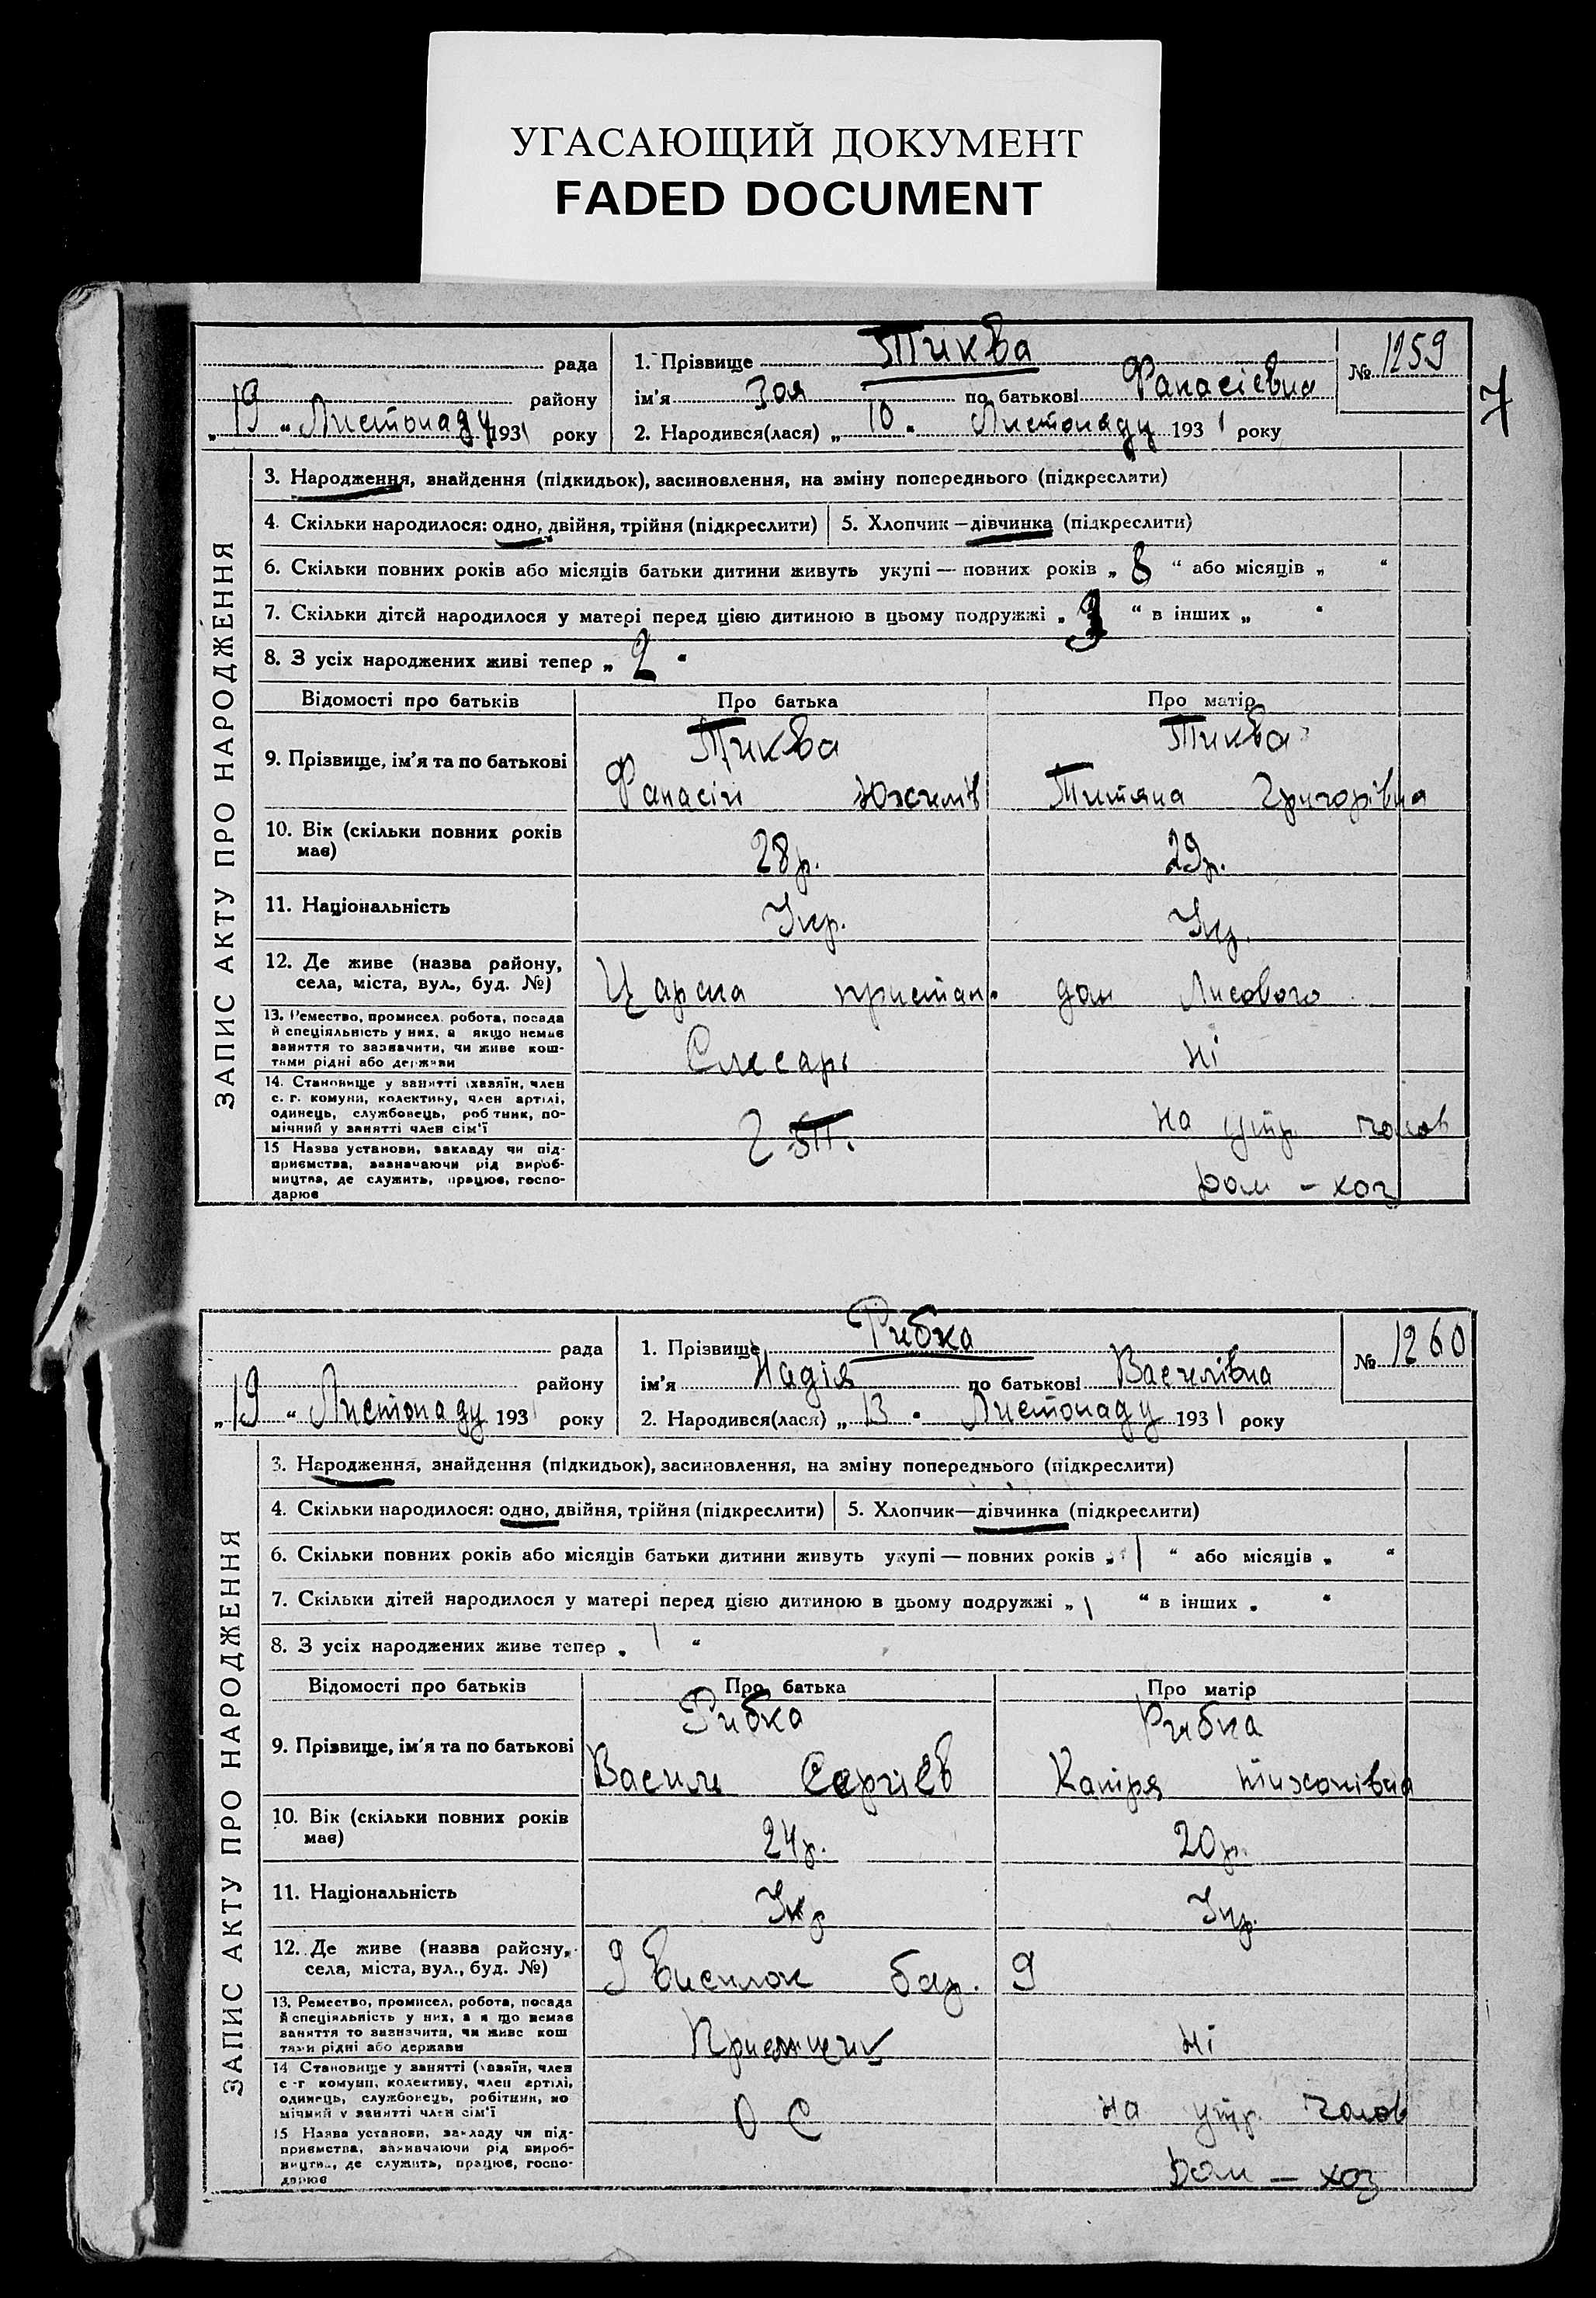 УГАСАЮЩИЙ ДОКУМЕНТ
FADED DOCUMENT
7
рада
району
„19“ Листопаду 1931 року
1. Прізвище Тиква
ім'я Зоя по батькові Фанасієвна
2. Народився(лася) „10“ Листопаду 1931 року
№ 1259
ЗАПИС АКТУ ПРО НАРОДЖЕННЯ
3. Народження, знайдення (підкидьок), засиновлення, на зміну попереднього (підкреслити)
4. Скільки народилося: одно, двійня, трійня (підкреслити) 5. Хлопчик — дівчинка (підкреслити)
6. Скільки повних років або місяців батьки дитини живуть укупі — повних років „8“ або місяців „ “
7. Скільки дітей народилося у матері перед цією дитиною в цьому подружжі „3“ в інших „ “
8. З усіх народжених живі тепер „2“
Відомості про батьків Про батька Про матір
9. Прізвище, ім'я та по батькові
Тиква Тиква
Фанасій Титяна Григорівна
10. Вік (скільки повних років
має)
28р. 29р.
11. Національність Укр. Укр.
12. Де живе (назва району,
села, міста, вул., буд. №)
Царска пристан. дом Лисового
13. Ремество, промисел, робота, посада
й спеціяльність у них, а якщо немає
заняття то зазначити, чи живе кош-
тами рідні або держави
Слєсарь Ні
14. Становище у занятті (хазяїн, член
с. г. комуни, колективу, член артілі,
одинець, службовець, робітник, по-
мічний у занятті член сім'ї
на утр. чолов
15 Назва установи, закладу чи під-
приємства, зазначаючи рід вироб-
ництва, де служить, працює, госпо-
дарює
дом – хоз
рада
району
„19“ Листопаду 1931 року
1. Прізвище Рибка
ім'я Надія по батькові Василівна
2. Народився(лася) „13“ Листопаду 1931 року
№ 1260
ЗАПИС АКТУ ПРО НАРОДЖЕННЯ
3. Народження, знайдення (підкидьок), засиновлення, на зміну попереднього (підкреслити)
4. Скільки народилося: одно, двійня, трійня (підкреслити) 5. Хлопчик—дівчинка (підкреслити)
6. Скільки повних років або місяців батьки дитини живуть укупі — повних років „1“ або місяців „ “
7. Скільки дітей народилося у матері перед цією дитиною в цьому подружжі „1“ в інших „ “
8. З усіх народжених живе тепер „1“
Відомості про батьків Про батька Про матір
9. Прізвище, ім'я та по батькові
Рибка Рибка
Василь Сергієв Тихонівна
10. Вік (скільки повних років
має)
24р. 20р.
11. Національність Укр Укр.
12. Де живе (назва району,
села, міста, вул., буд. №)
9 Висилок бар. 9
13. Ремество, промисел, робота, посада
й спеціяльність у них, а якщо немає
заняття то зазначити, чи живе кош
тами рідні або держави
Ні
14 Становище у занятті (хазяїн, член
с-г комуни, колективу, член артілі,
одинець, службовець, робітник, по
мічний у занятті член сім'ї
О С на утр. чолов
15 Назва установи, закладу чи під-
приємства, зазначаючи рід вироб-
ництва, де служить, працює, госпо-
дарює
дом – хоз